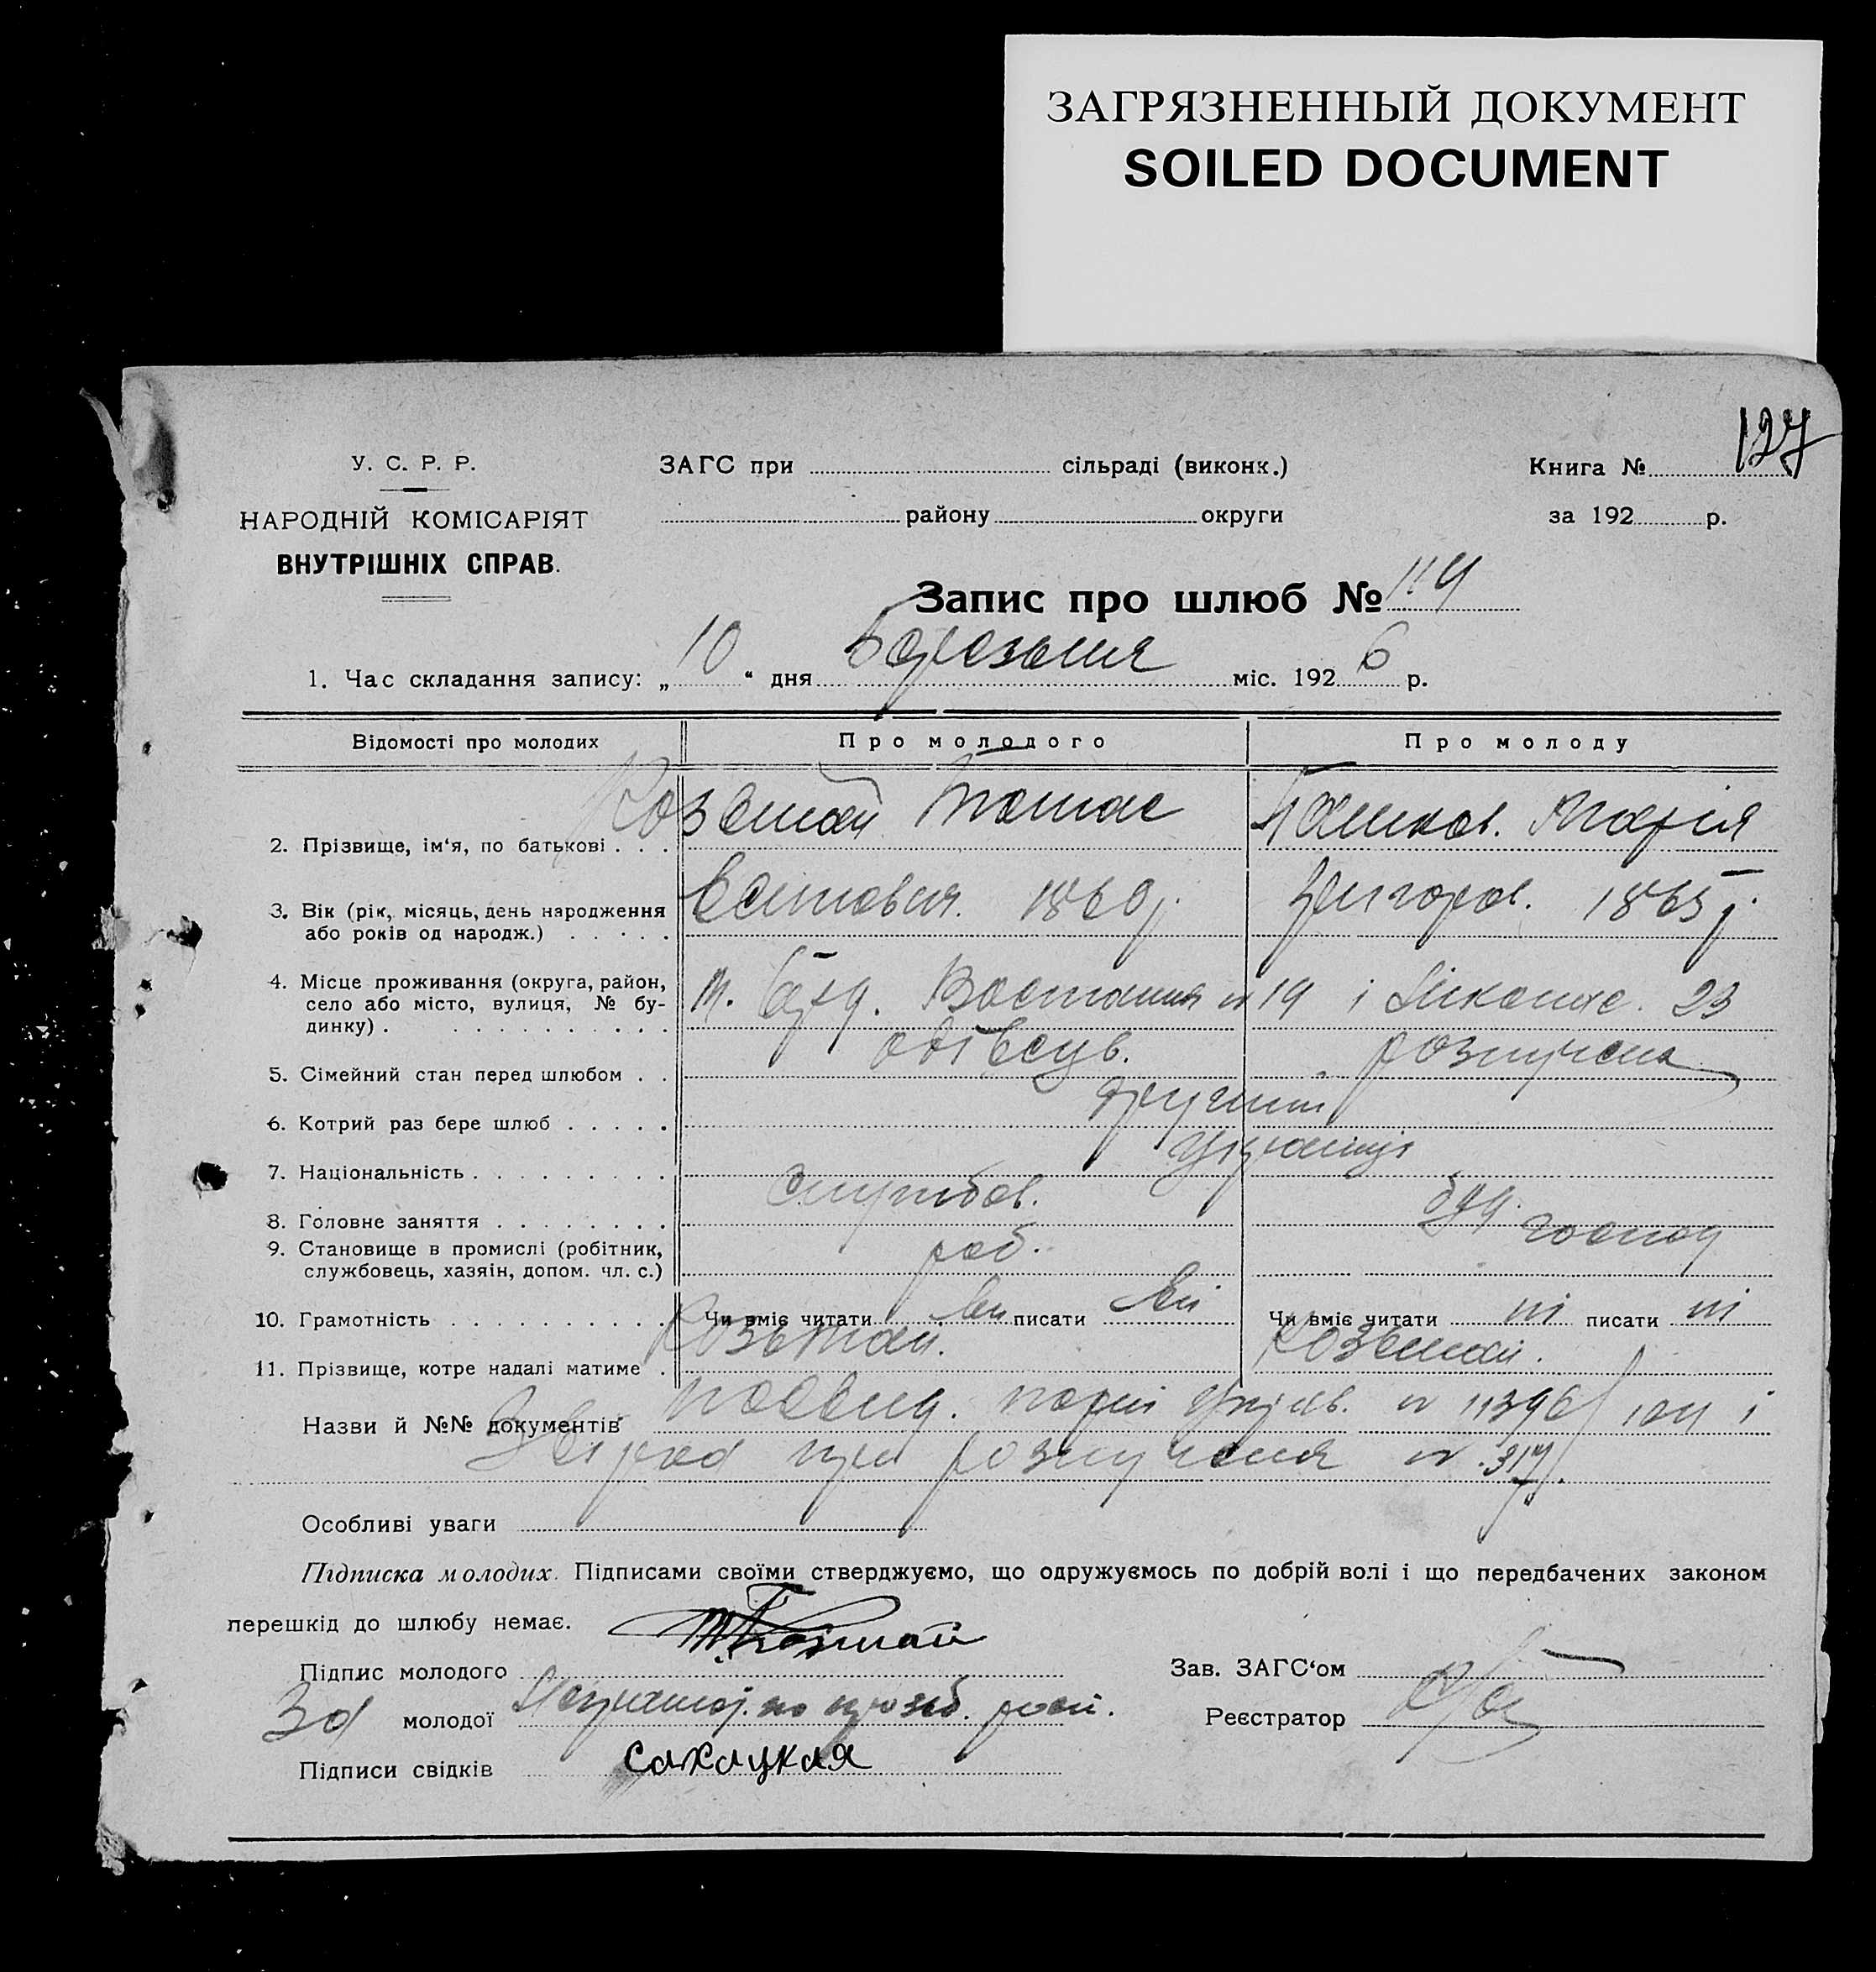 ЗАГРЯЗНЕННЫЙ ДОКУМЕНТ
SOILED DOCUMENT
127
У. С. Р. Р.
НАРОДНІЙ КОМІСАРІЯТ
ВНУТРІШНІХ СПРАВ.
ЗАГС при сільраді (виконк.)
району округи
Книга №
за 192 р.
Запис про шлюб № 114
1. Час складання запису: „ 10 “ дня Березня міс. 192 6 р.
Відомості про молодих Про молодого Про молоду
2. Прізвище, ім‘я, по батькові . . . Козьтай Томас Марія
3. Вік (рік, місяць, день народження 1860 р. Григоров. 1865 р.
або років од народж.) . . . . .
4. Місце проживання (округа, район, м. Востання № 19 і 23
село або місто, вулиця, № бу-
динку) . . . . . . . . . . .
5. Сімейний стан перед шлюбом . . розлучена
6. Котрий раз бере шлюб . . . . . другий
7. Національність . . . . . . . . . українці
8. Головне заняття . . . . . . . . службов.
9. Становище в промислі (робітник, роб. господ
службовець, хазяін, допом. чл. с.)
10. Грамотність . . . . . . . . . . Чи вміє читати вміє писати Чи вміє читати ні писати ні
11. Прізвище, котре надалі матиме . Козьтай. Козьтай.
Назви й №№ документів посвид. № 11396/ і
про розлучення № 317/.
Особливі уваги
Підписка молодих. Підписами своїми стверджуємо, що одружуємось по добрій волі і що передбачених законом
перешкід до шлюбу немає.
Підпис молодого Козьтай
За молодої неграмот. по розп.
Підписи свідків Сахацкая
Зав. ЗАГС‘ом
Реєстратор